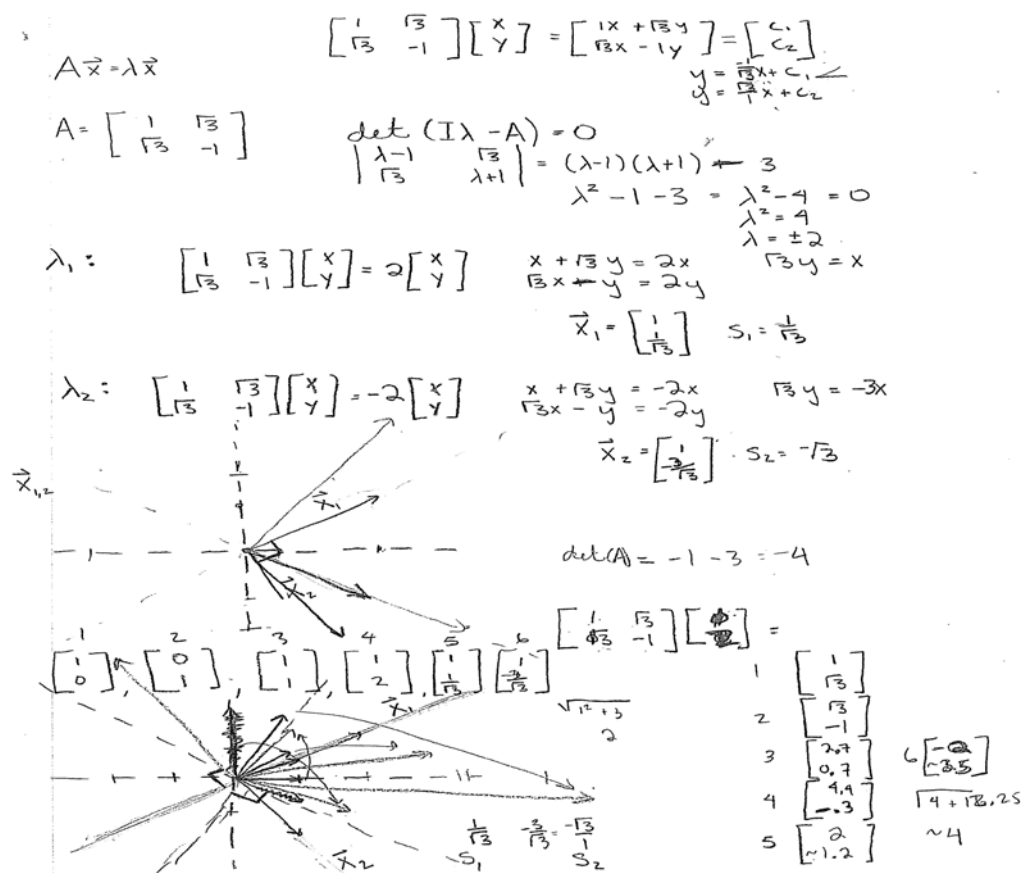 [1 √3; √3 -1] [x; y] = [1x + √3y; √3x - 1y] = [c₁; c₂]
Ax⃗ = λx⃗
y = -1/√3 x + c₁
y = √3/1 x + c₂
A = [1 √3; √3 -1]
det (Iλ - A) = 0
|λ-1 √3; √3 λ+1| = (λ-1)(λ+1) - 3
λ² - 1 - 3 = λ² - 4 = 0
λ² = 4
λ = ±2
λ₁: [1 √3; √3 -1] [x; y] = 2 [x; y]
x + √3y = 2x
√3x - y = 2y
√3y = x
x⃗₁ = [1; 1/√3] S₁ = 1/√3
λ₂: [1 √3; √3 -1] [x; y] = -2 [x; y]
x + √3y = -2x
√3x - y = -2y
√3y = -3x
x⃗₂ = [1; -3/√3] S₂ = -√3
x⃗₁,₂
x⃗₁
x⃗₂
det(A) = -1 - 3 = -4
[1 √3; √3 -1] =
1 2 3 4 5 6
[1; 0], [0; 1], [1; 1], [1; 2], [1; 1/√3] [1; -3/√3]
x⃗₁
√(1² + 3)
2
1 [1; √3]
2 [√3; -1]
3 [2.7; 0.7]
6 [-2; ~3.5]
4 [4.4; -.3]
√(4 + 13.25
5 [2; ~1.2]
~4
1/√3 -3/√3 = -√3/1
S₁ S₂
x⃗₂